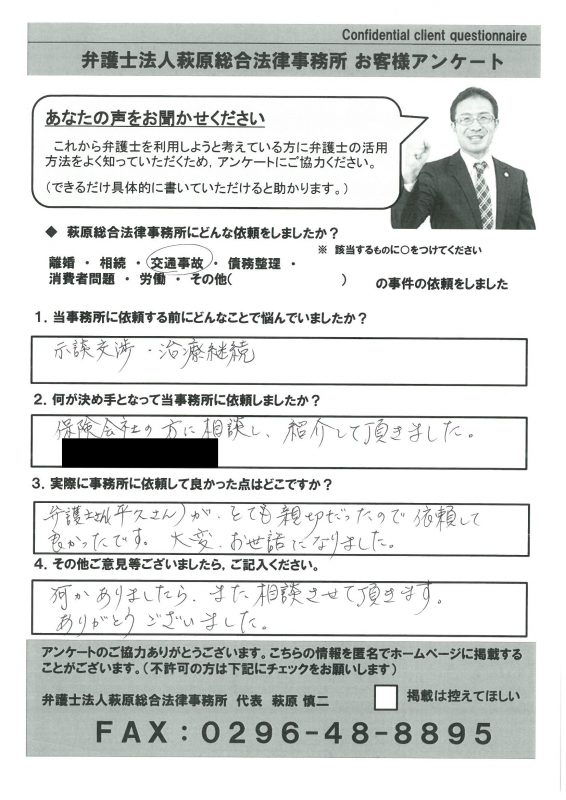 Confidential client questionnaire
弁護士法人萩原総合法律事務所 お客様アンケート
あなたの声をお聞かせください
これから弁護士を利用しようと考えている方に弁護士の活用
方法をよく知っていただくため,アンケートにご協力ください。
(できるだけ具体的に書いていただけると助かります。)
◆ 萩原総合法律事務所にどんな依頼をしましたか?
※ 該当するものに○をつけてください
離婚 ・ 相続 ・ 交通事故 ・ 債務整理 ・
消費者問題 ・ 労働 ・ その他( ) の事件の依頼をしました
1. 当事務所に依頼する前にどんなことで悩んでいましたか?
示談交渉・治療継続
2. 何が決め手となって当事務所に依頼しましたか?
保険会社の方に相談し、紹介して頂きました。
3. 実際に事務所に依頼して良かった点はどこですか?
弁護士さん(平久さん)が、とても親切だったので依頼して
良かったです。大変、お世話になりました。
4. その他ご意見等ございましたら、ご記入ください。
何かありましたら、また相談させて頂きます。
ありがとうございました。
アンケートのご協力ありがとうございます。こちらの情報を匿名でホームページに掲載する
ことがございます。(不許可の方は下記にチェックをお願いします)
弁護士法人萩原総合法律事務所 代表 萩原 慎二
掲載は控えてほしい
FAX:0296-48-8895